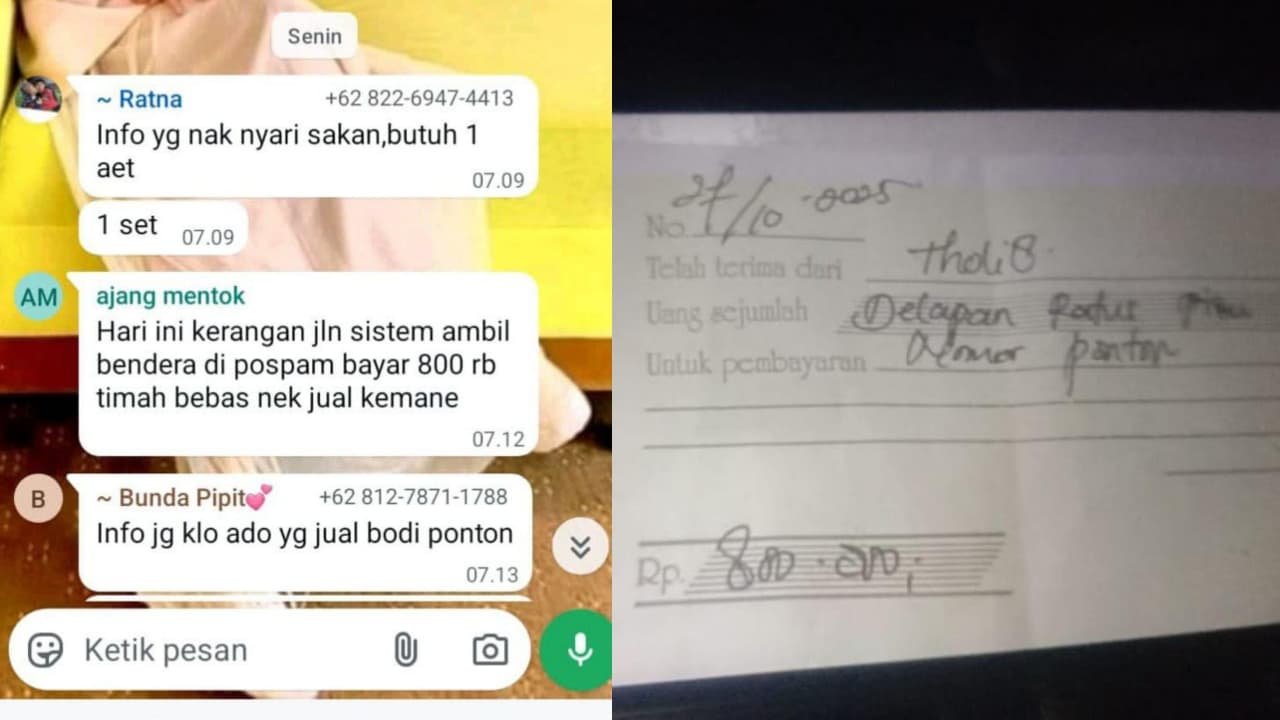 Senin
~ Ratna +62 822-6947-4413
Info yg nak nyari sakan,butuh 1
aet
07.09
1 set 07.09
AM ajang mentok
Hari ini kerangan jln sistem ambil
bendera di pospam bayar 800 rb
timah bebas nek jual kemane
07.12
B ~ Bunda Pipit💕 +62 812-7871-1788
Info jg klo ado yg jual bodi ponton
07.13
Ketik pesan
No. 27/10
Telah terima dari Tholib
Uang sejumlah Delapan Ratus
Untuk pembayaran Nomor ponton
Rp. 800.000,